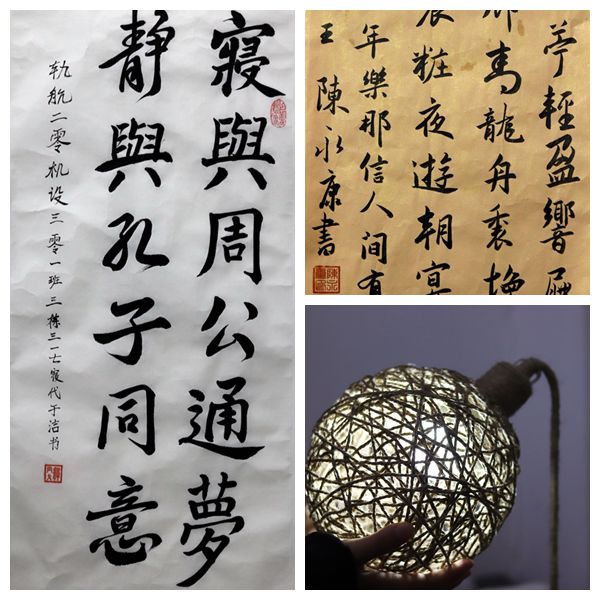 寢與周公通夢
靜與孔子同意
軌航二零机设三零一班三栋三一七寝代于洁书
輕盈響屧
青龍舟裏
粧夜遊朝宴
年樂那信人间有
王 陳永康書